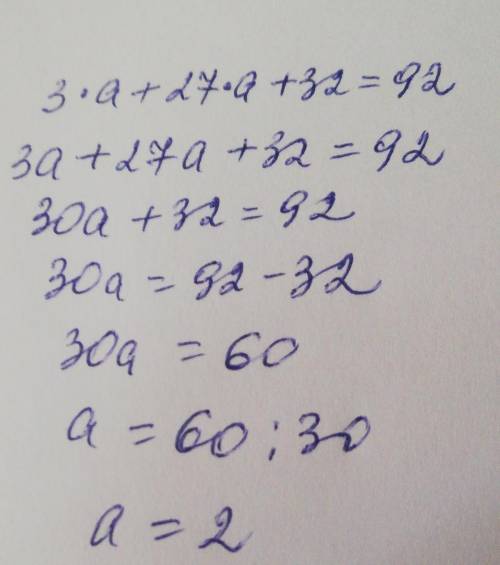 3·a+27·a+32=92
3a+27a+32=92
30a+32=92
30a=92-32
30a=60
a=60:30
a=2